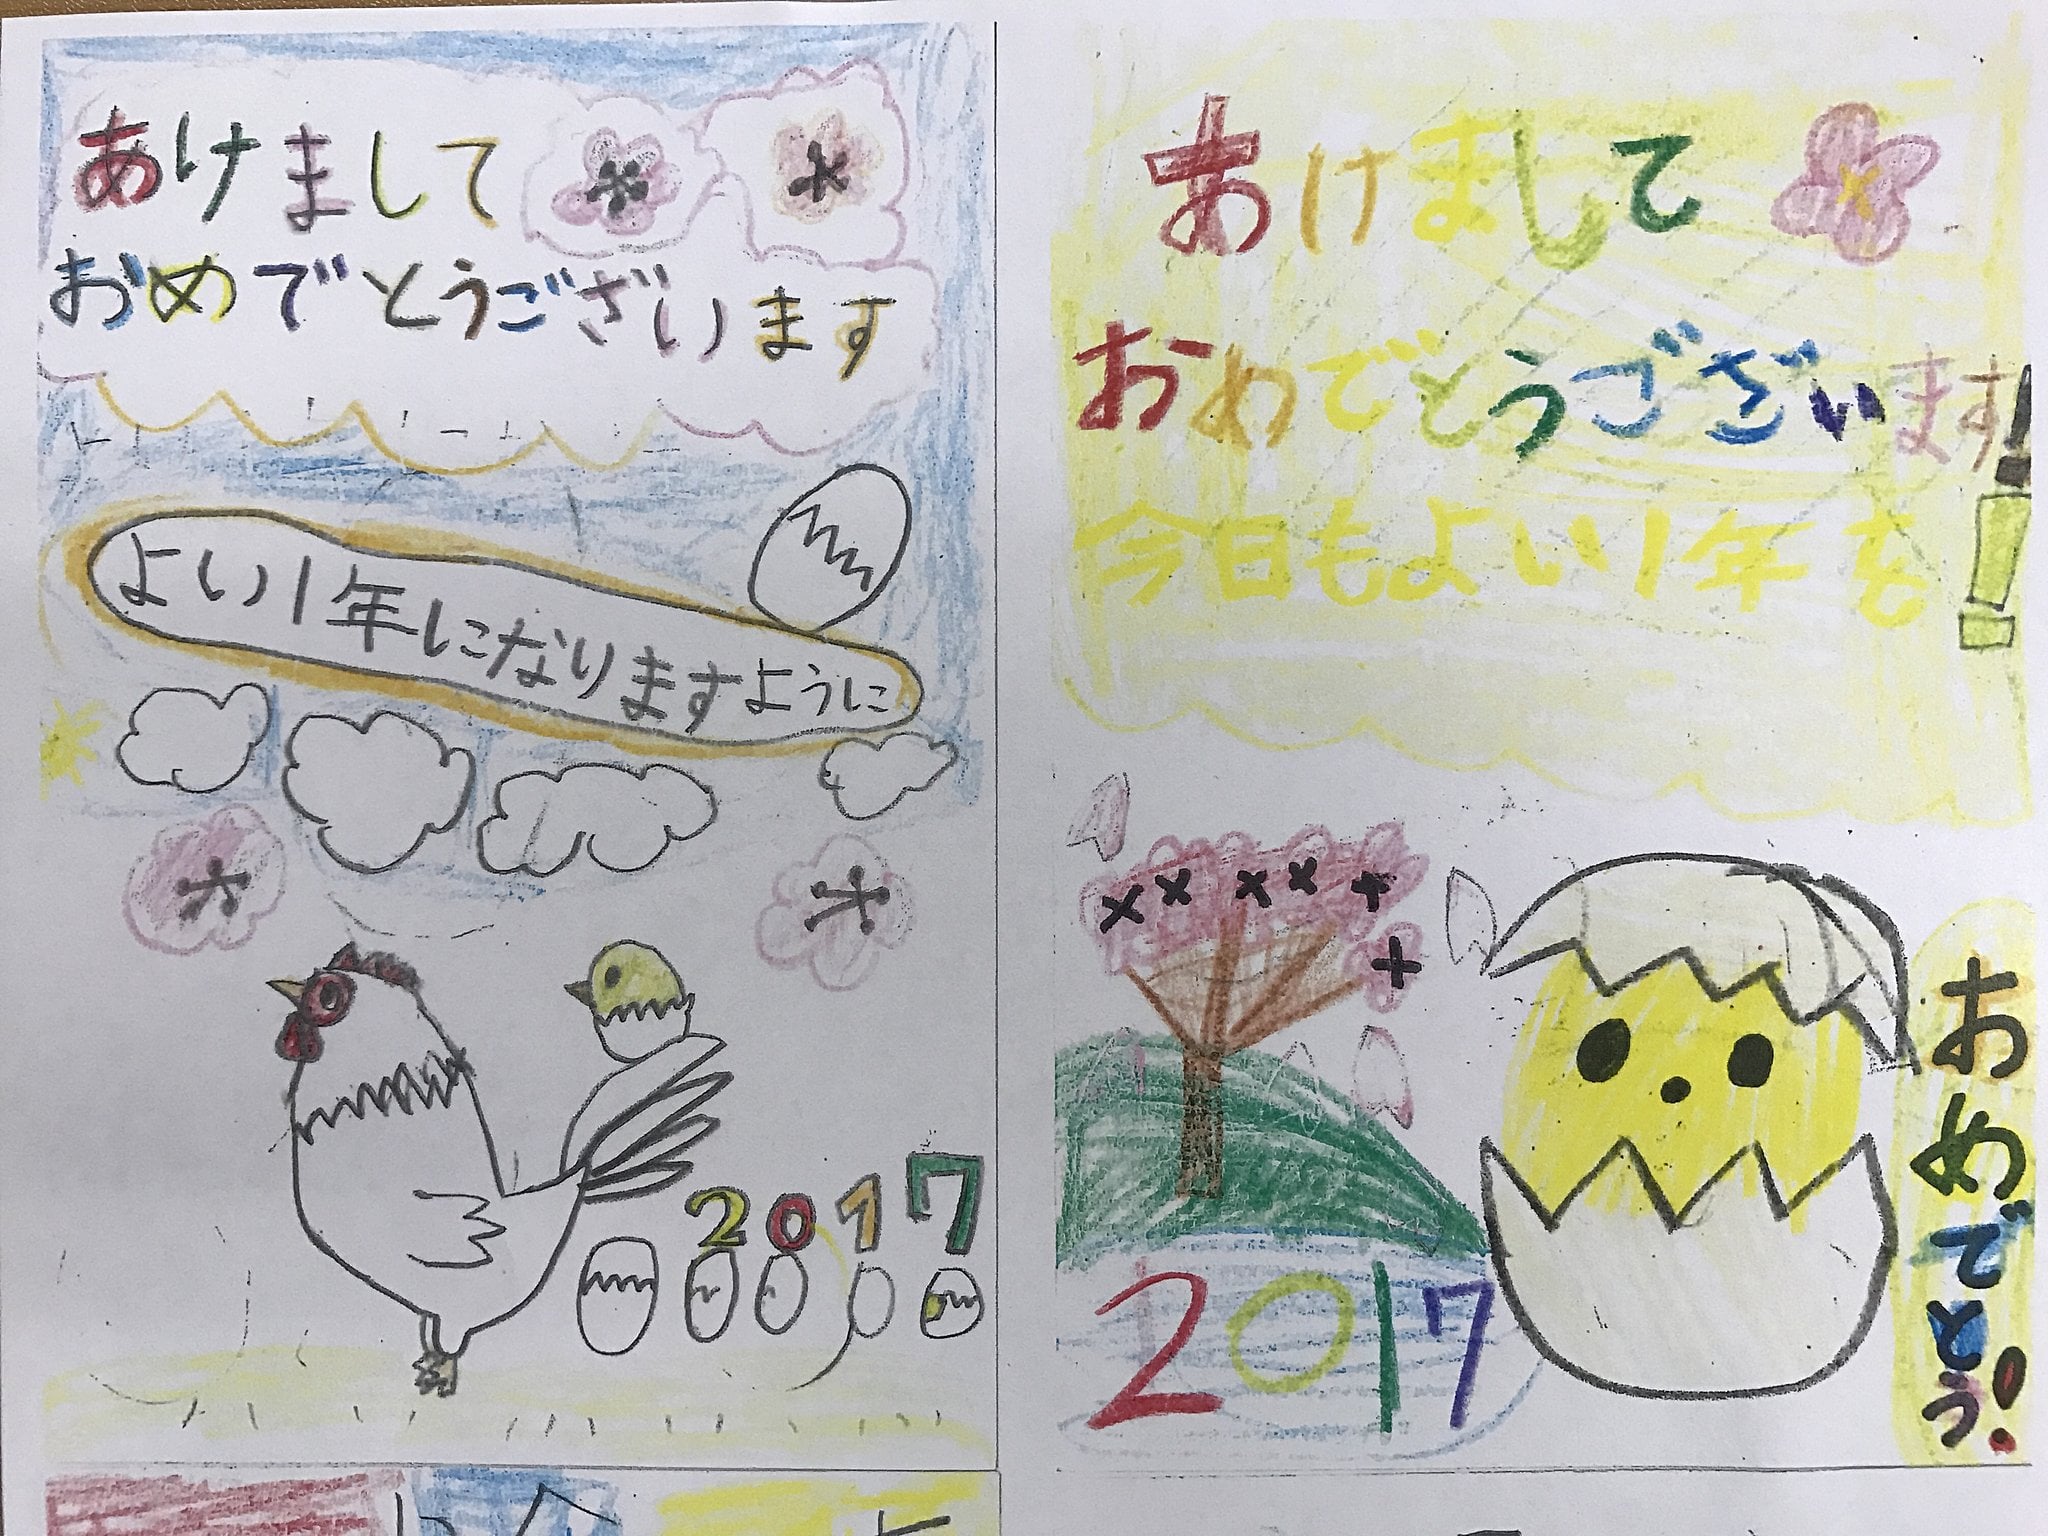 あけまして
おめでとうございます
よい1年になりますように
2017
あけまして
おめでとうございます!
今日もよい1年を!
2017
おめでとう!